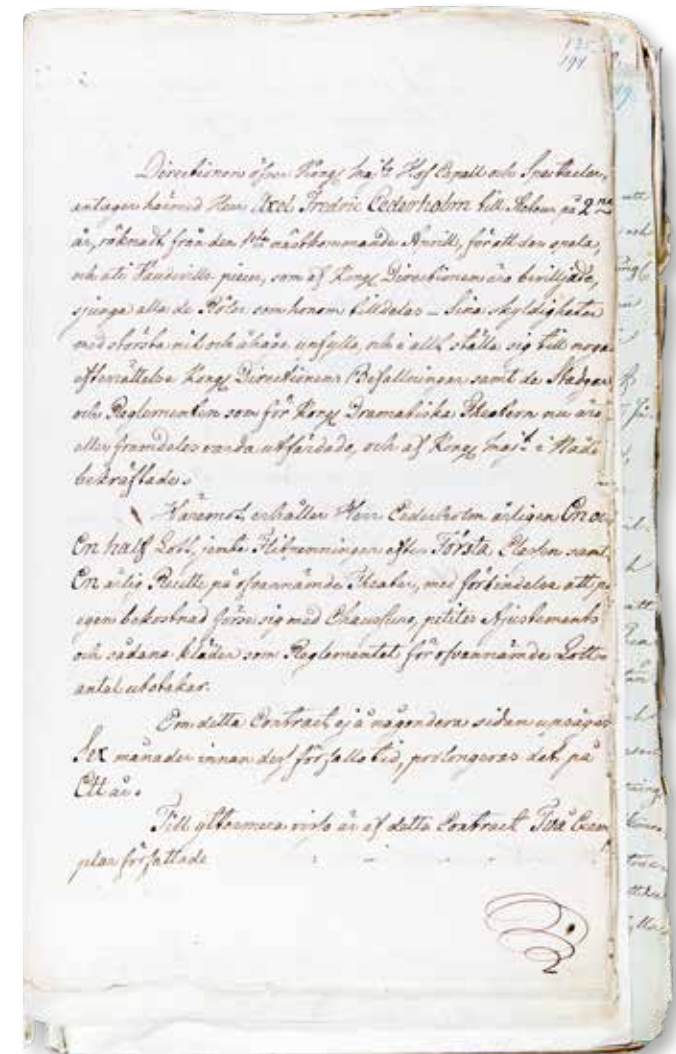 191
Directionen öfver Kongl Maj:ts Hof Capell och Spectacler,
antager härmed Herr Axel Fredric Cederholm till Acteur på 2ne
år, räknadt från den 1sta nästkommande Aprill, för att den spela,
och uti Vaudeville piecer, som af Kongl Directionen äro beviljade,
sjunga alla de Röler som honom tilldelas – Sina skyldigheter
med största nit och åhåga uppfylla, och i allt ställa sig till noga
efterrättelse Kongl Directionens Befallningar samt de Stadgar
och Reglementen som för Kongl Dramatiska Theatern nu äro
eller framdeles varda utfärdade, och af Kongl Maj:t i Nåder
bekräftade.
Häremot erhåller Herr Cederholm årligen En och
En half Lott, jemte Flitpenningar efter Första Classen samt
En årlig Recette på ofvannämde Theater, med förbindelse att på
egen bekostnad förse sig med Chaussure, petites Ajustements
och sådana kläder som Reglementet för ofvannämde Lott-
antal utstakar.
Om detta Contract ej å någondera sidan uppsäges
Sex månader innan dess förfallotid, prolongeras det på
Ett år.
Till yttermera visso är af detta Contract Två Exem-
plar författade